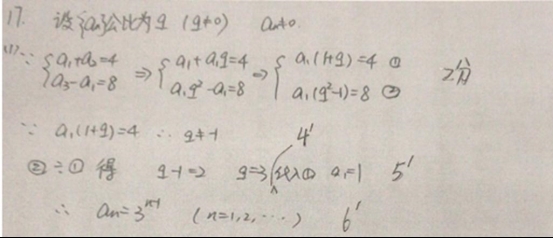 17. 设{an}公比为q (q≠0) a₁≠0.
(1) ∵ { a₁+a₂=4 a₃-a₁=8 ⇒ { a₁+a₁q=4 a₁q²-a₁=8 ⇒ { a₁(1+q)=4 ① a₁(q²-1)=8 ② 2分
∵ a₁(1+q)=4 ∴ q≠-1 4'
②÷① 得 q-1=2 q=3 代入① a₁=1 5'
∴ an=3ⁿ⁻¹ (n=1,2,···) 6'